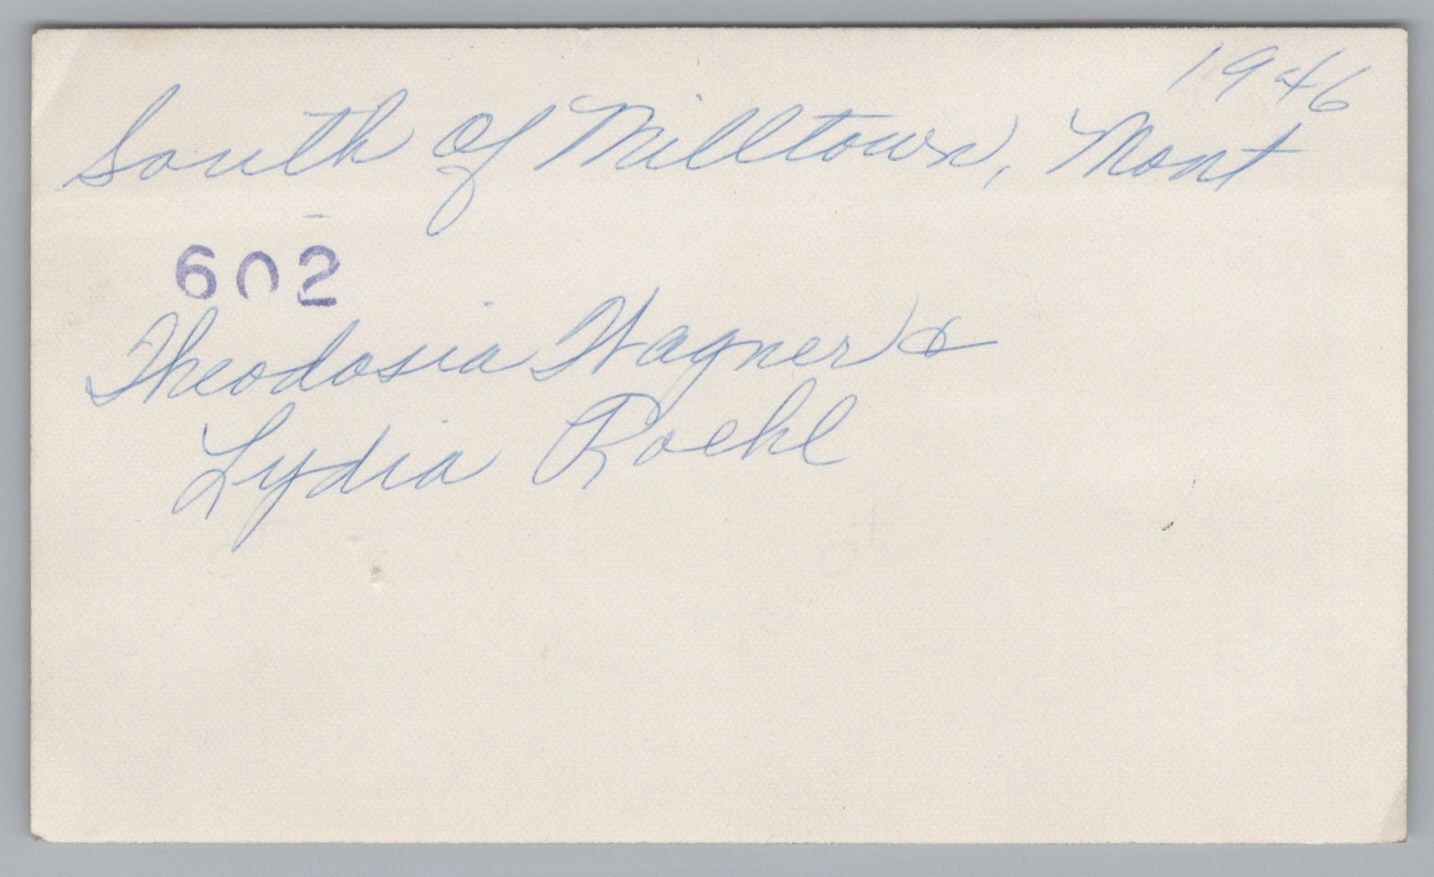 1946
South of Milltown, Mont
602
Theodosia Wagner &
Lydia Roehl